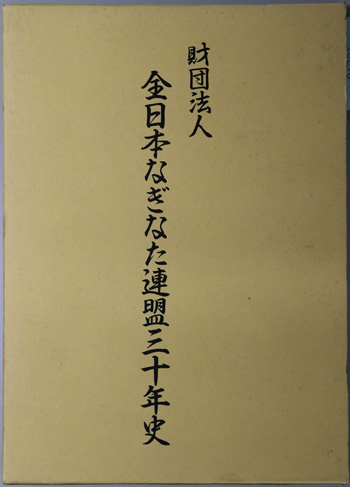 財団法人
全日本なぎなた連盟三十年史